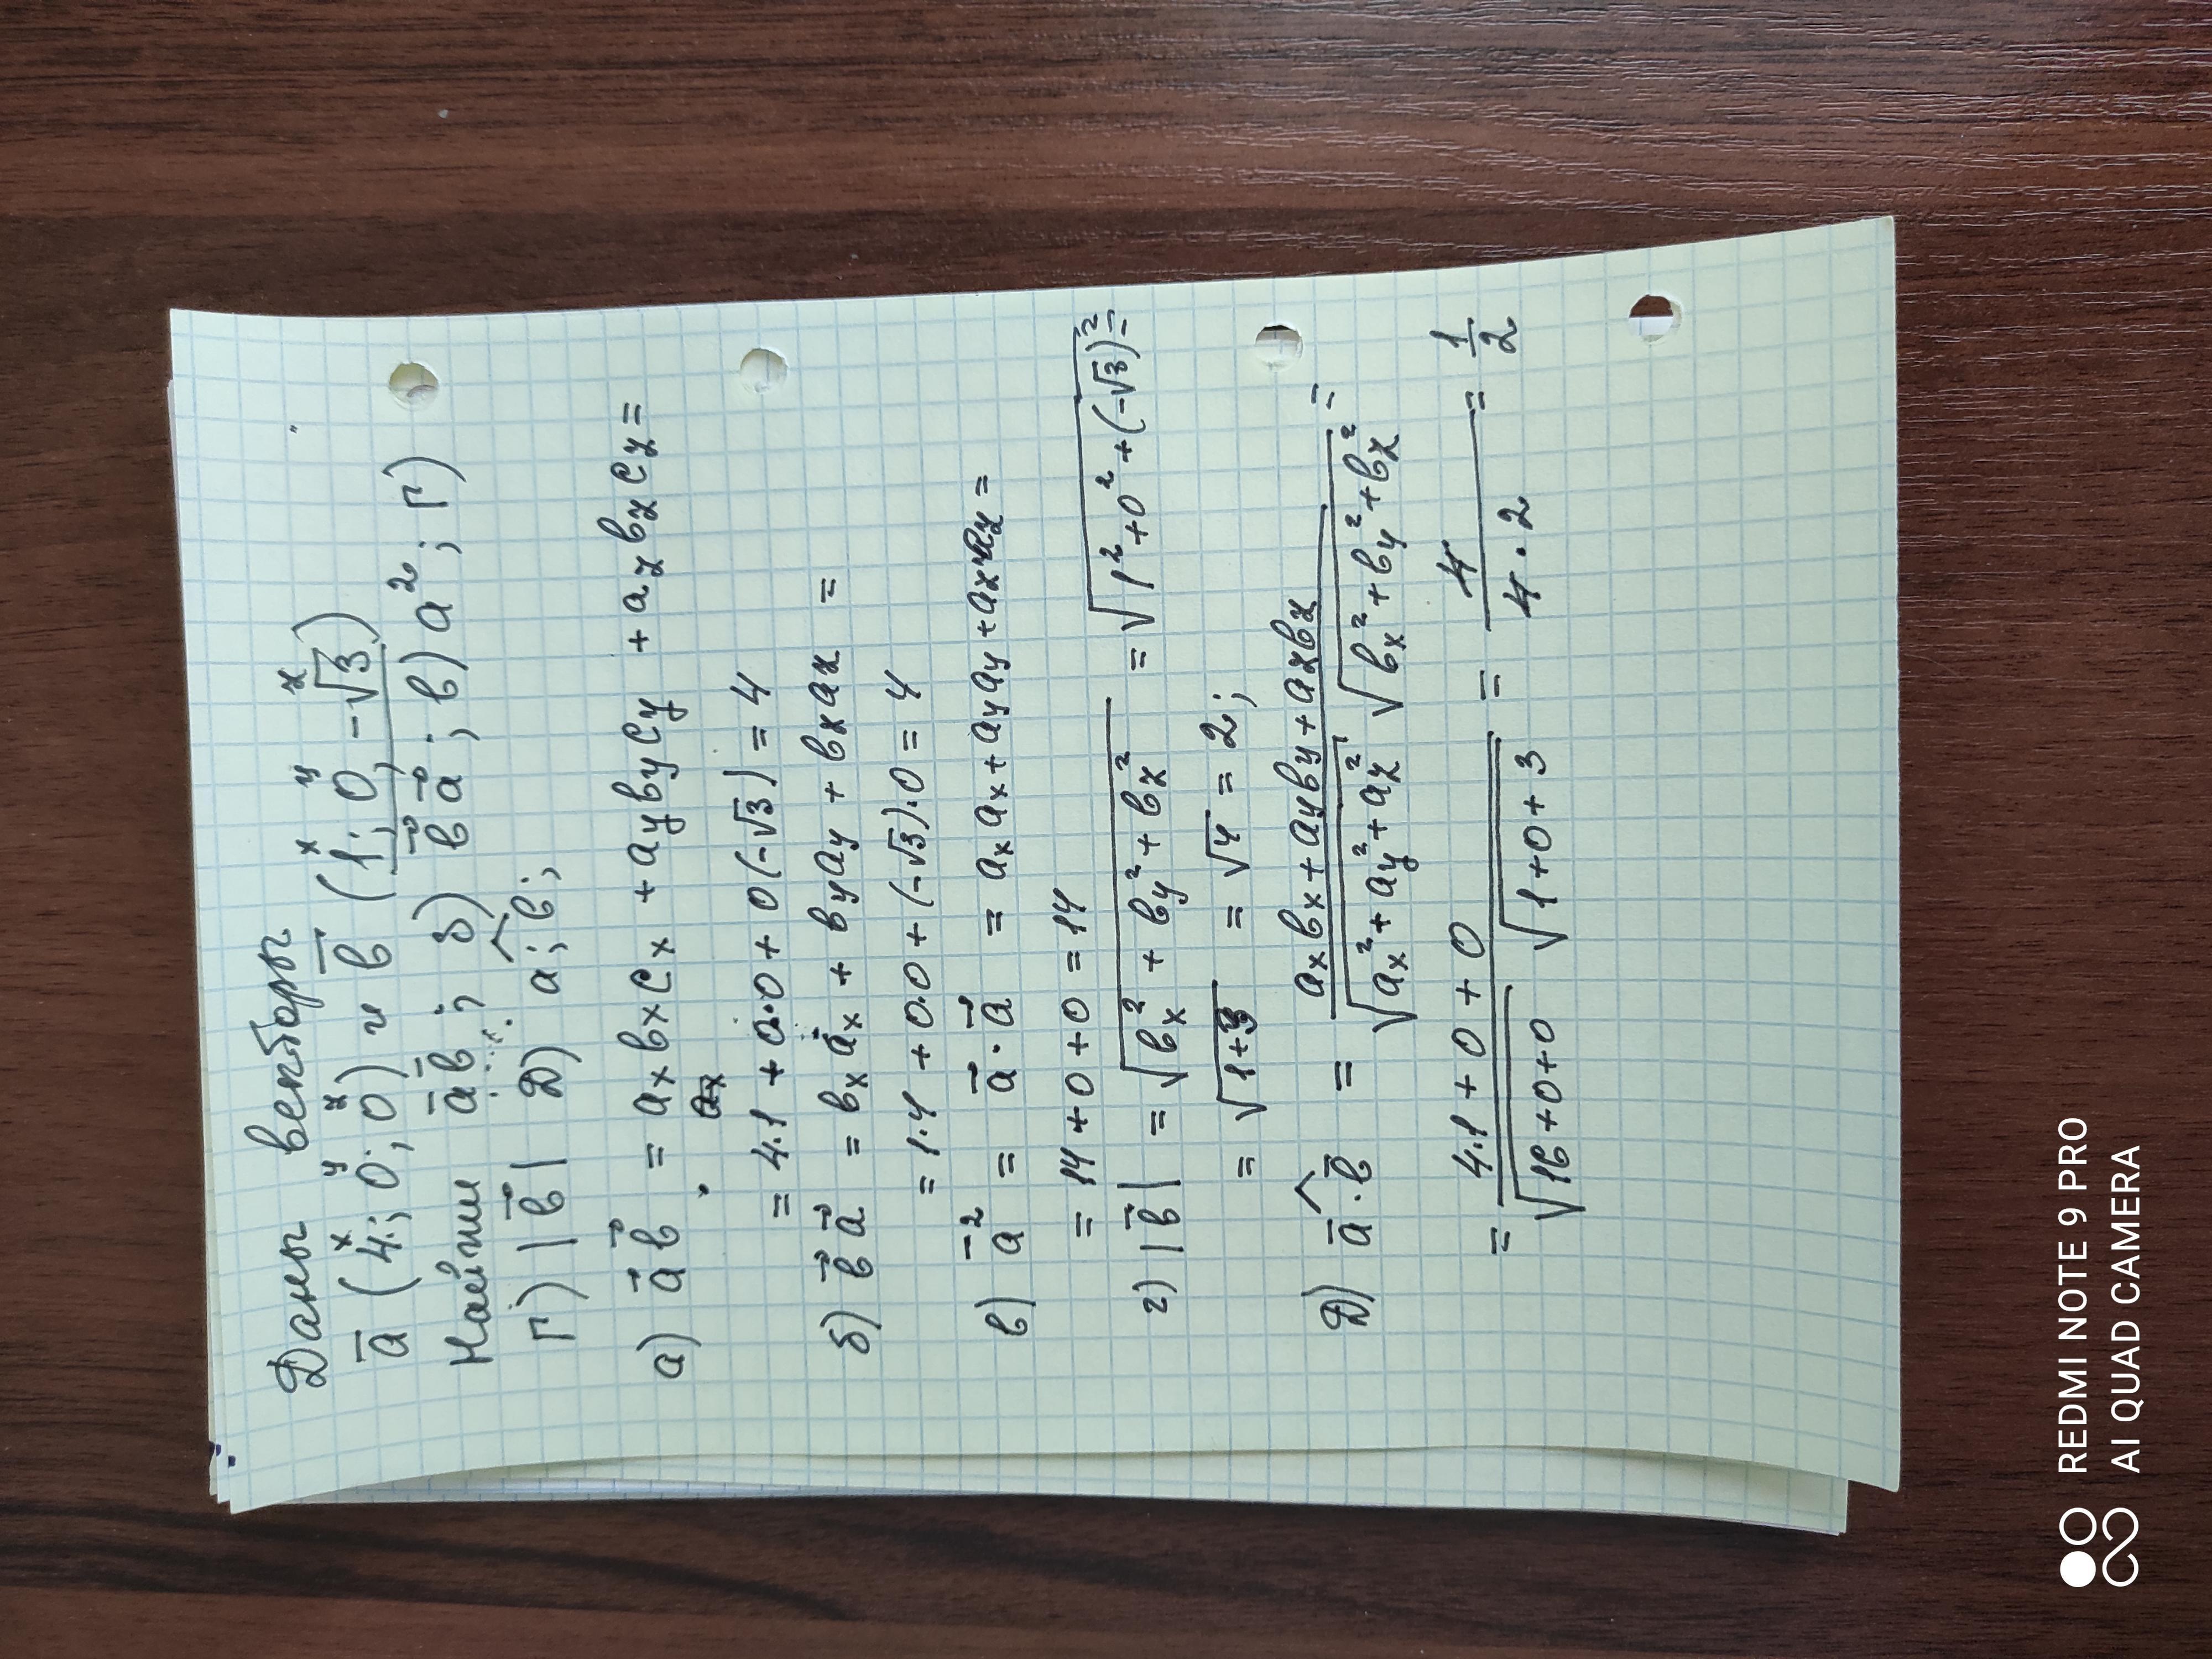 Даны векторы
x y z x y z
a̅ (4; 0; 0) и b̅ (1; 0, -√3)
Найти a̅b̅; б) b⃗a⃗; в) a²; г)
г) |b⃗| Д) a; b;
а) a⃗b⃗ = aₓbₓcₓ + a_y b_y c_y + a_z b_z c_z =
aₓ
= 4·1 + 0·0 + 0(-√3) = 4
б) b⃗a⃗ = bₓaₓ + b_y a_y + b_z a_z =
= 1·4 + 0·0 + (-√3)·0 = 4
в) a⃗² = a⃗·a⃗ = aₓaₓ + a_y a_y + a_z a_z =
= 14 + 0 + 0 = 14
г) |b⃗| = √(bₓ² + b_y² + b_z²) = √(1² + 0² + (-√3)²) =
= √(1+3) = √4 = 2;
Д) a̅^·b̅ = (aₓbₓ + a_y b_y + a_z b_z) / (√(aₓ² + a_y² + a_z²) √(bₓ² + b_y² + b_z²)) =
= (4·1 + 0 + 0) / (√(16+0+0) √(1+0+3)) = 4 / (4·2) = 1/2
REDMI NOTE 9 PRO
AI QUAD CAMERA